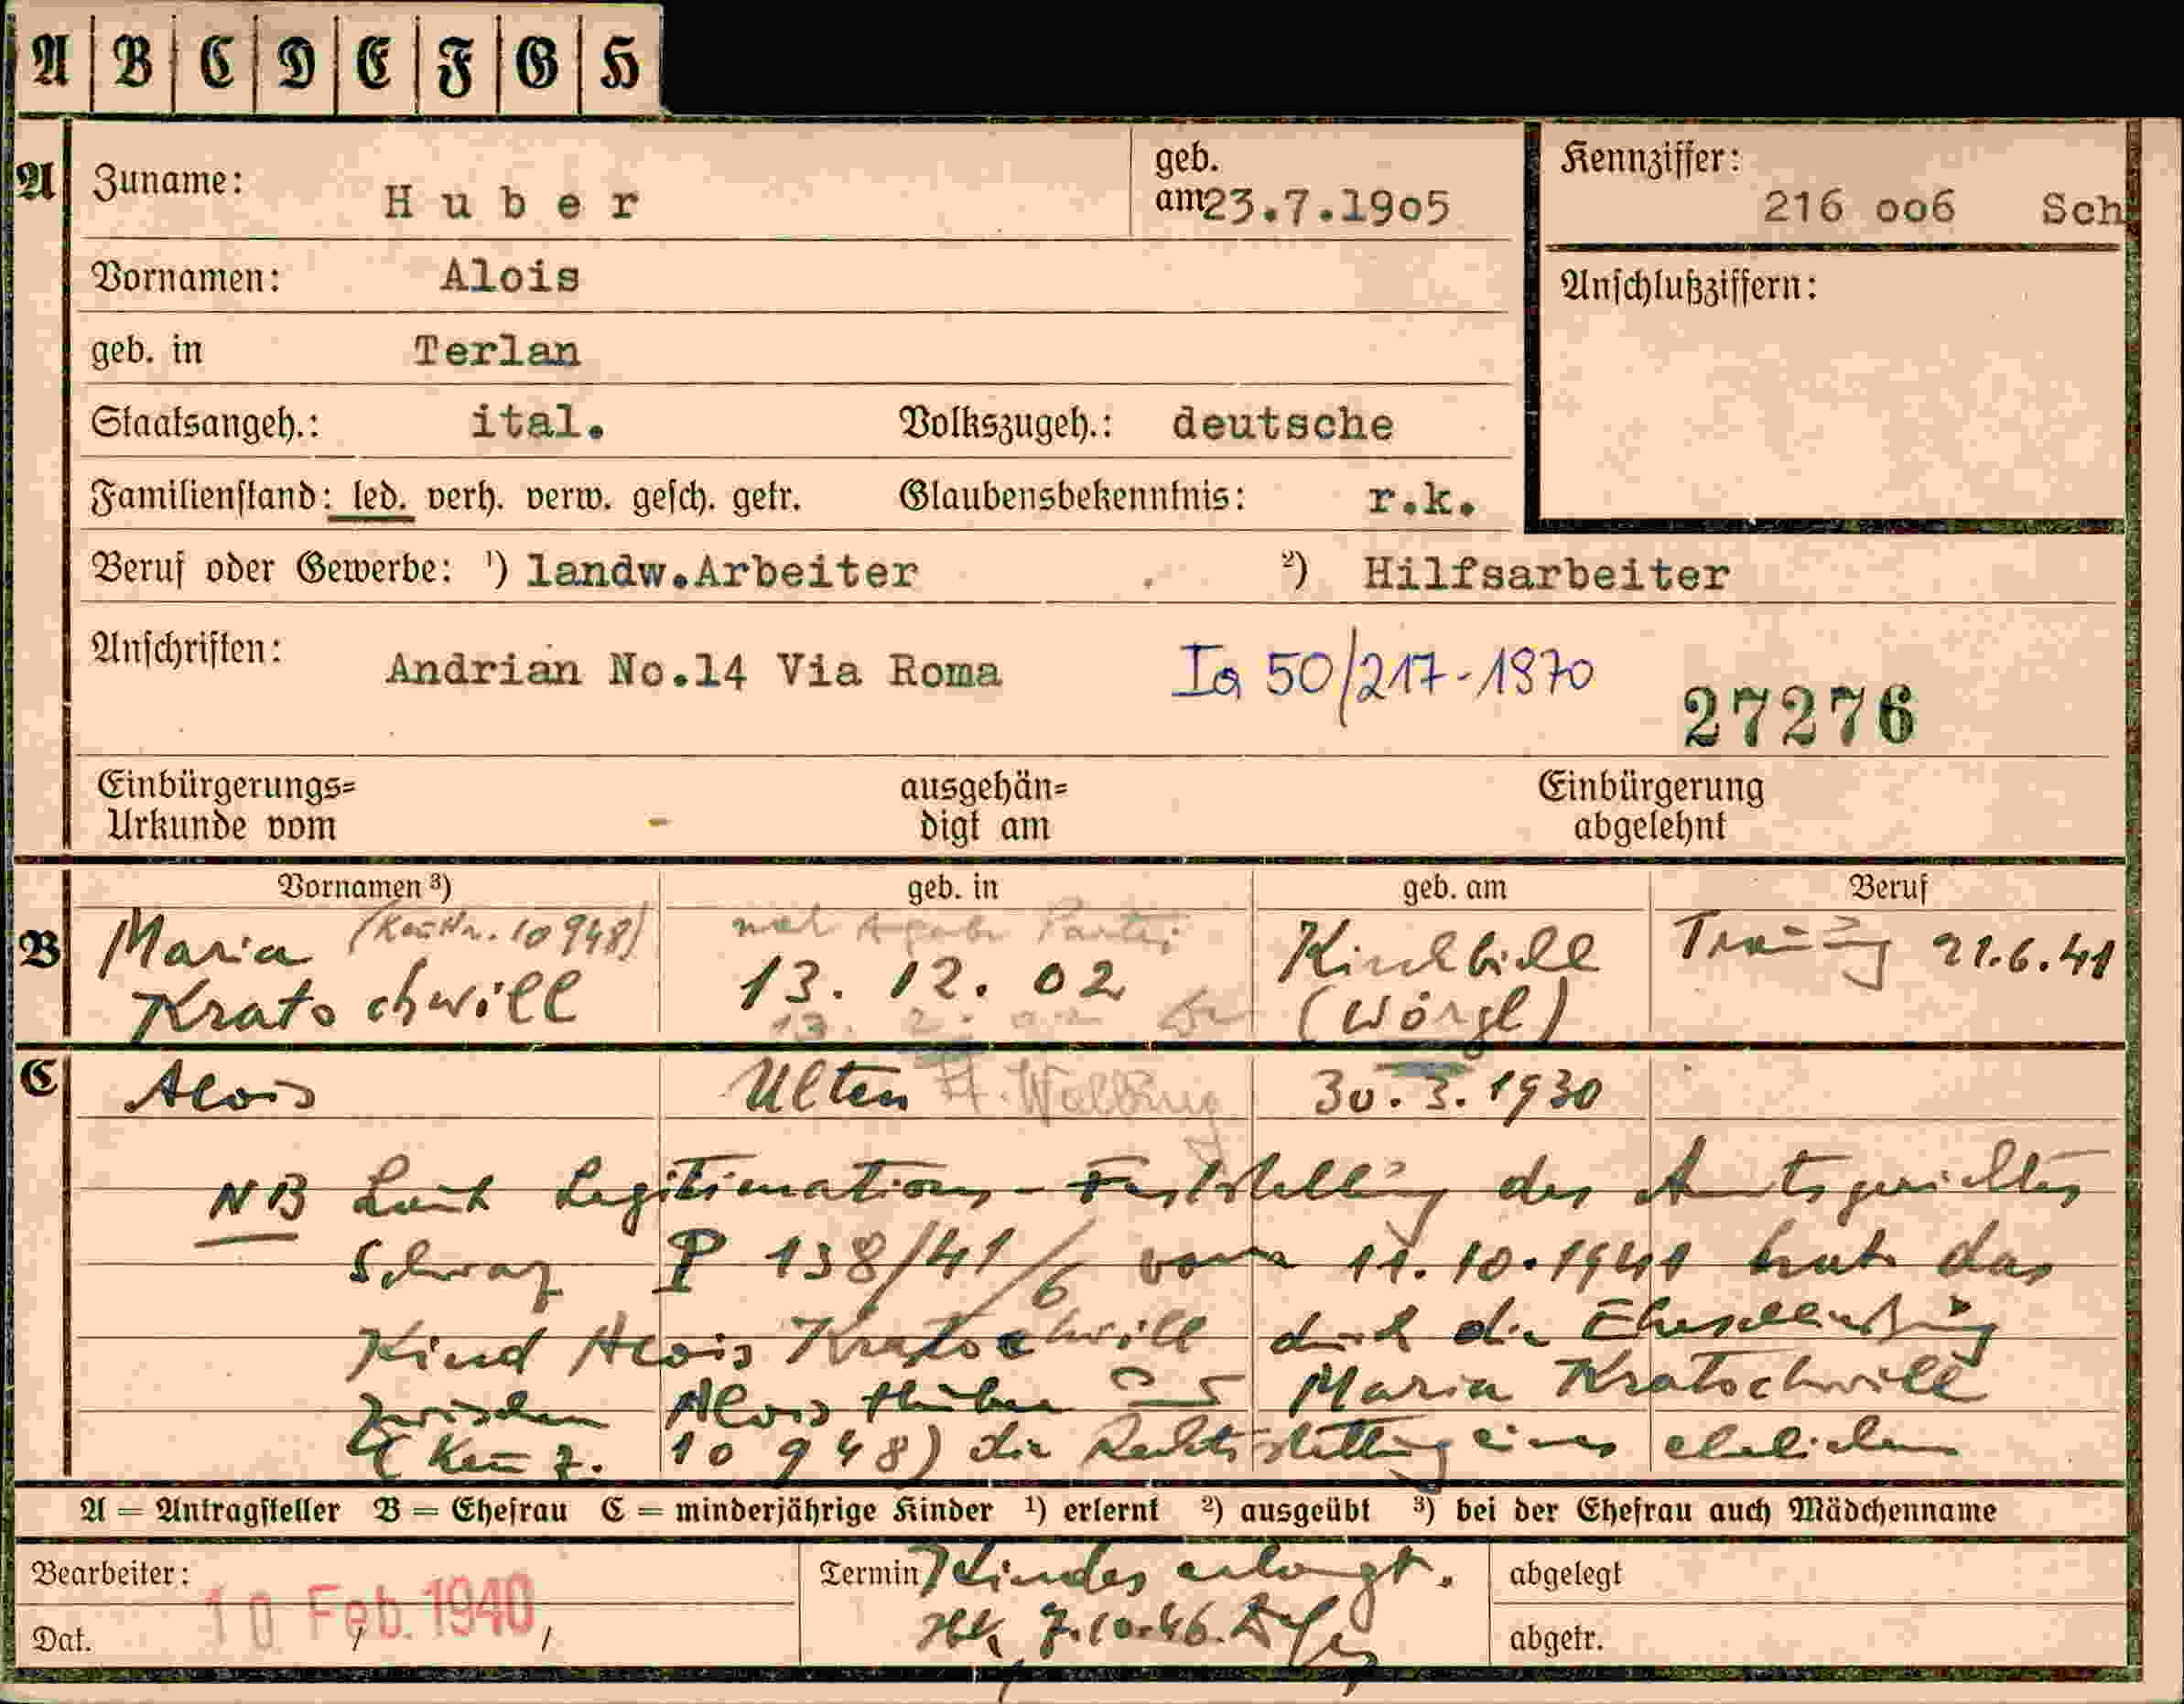 A B C D E F G H
A Zuname: Huber geb. am 23.7.1905 Kennziffer: 216 006 Sch
Vornamen: Alois Anschlußziffern:
geb. in Terlan
Staatsangeh.: ital. Volkszugeh.: deutsche
Familienstand: led. verh. verw. gesch. getr. Glaubensbekenntnis: r.k.
Beruf oder Gewerbe: ¹) landw.Arbeiter ²) Hilfsarbeiter
Anschriften: Andrian No.14 Via Roma Ia 50/217-1970
27276
Einbürgerungs= ausgehän= Einbürgerung
Urkunde vom - digt am abgelehnt
Vornamen ³) geb. in geb. am Beruf
B Maria 10948) 13. 12. 02 Kirchbichl Trauung 21.6.41
Kratochwill (Wörgl)
C Alois Ulten St. Walburg 30.3.1930
NB Laut Legitimations-Feststellung des Amtsgerichtes
Schwaz P 138/41/6 vom 11.10.1941 hat das
Kind Alois Kratochwill durch die Eheschließung
zwischen Alois Huber und Maria Kratochwill
10948) die Rechtsstellung eines ehelichen
A = Antragsteller B = Ehefrau C = minderjährige Kinder ¹) erlernt ²) ausgeübt ³) bei der Ehefrau auch Mädchenname
Bearbeiter: Termin Kindes erlangt. abgelegt
10 Feb. 1940
Dat. / / 7.10.46. abgetr.